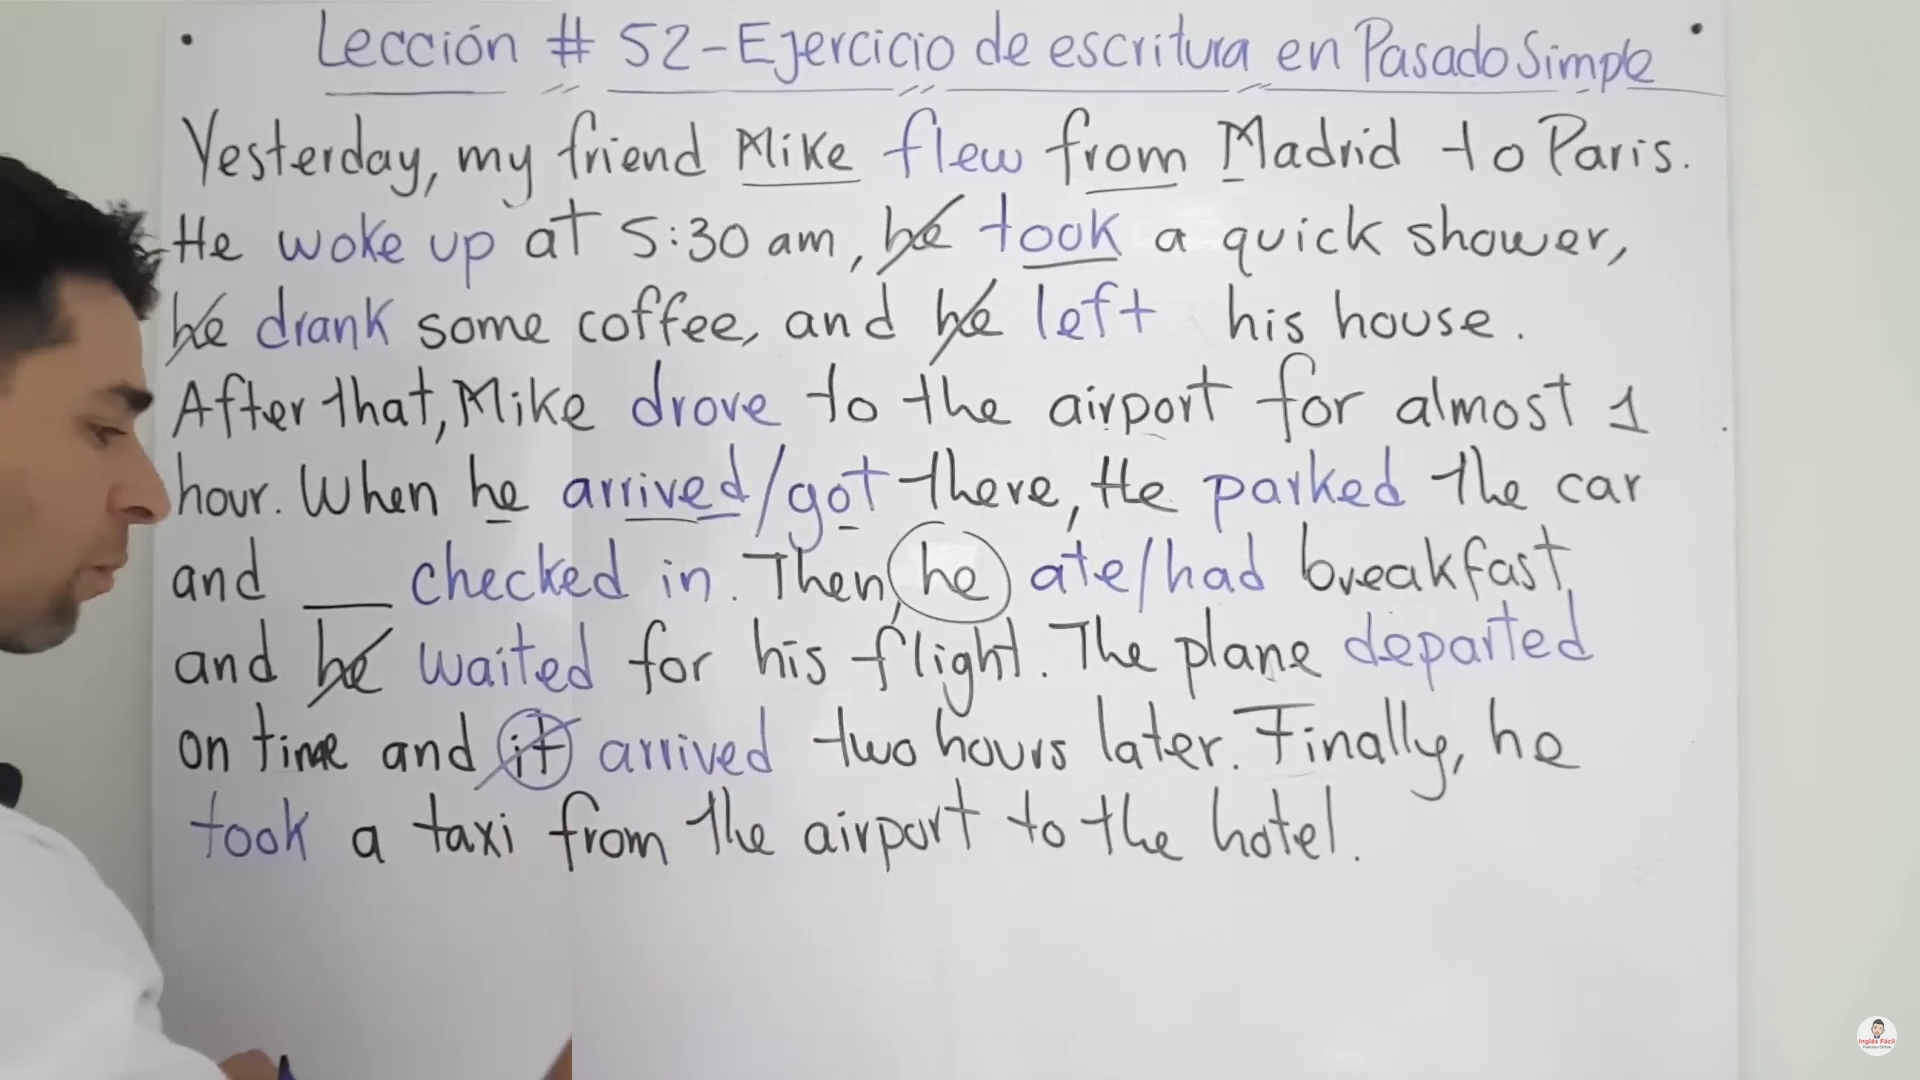 Lección # 52 - Ejercicio de escritura en Pasado Simple
Yesterday, my friend Mike flew from Madrid to Paris.
He woke up at 5:30 am, he took a quick shower,
he drank some coffee, and he left his house.
After that, Mike drove to the airport for almost 1
hour. When he arrived/got there, He parked the car
and __ checked in. Then, he ate/had breakfast,
and he waited for his flight. The plane departed
on time and it arrived two hours later. Finally, he
took a taxi from the airport to the hotel.
Inglés Fácil